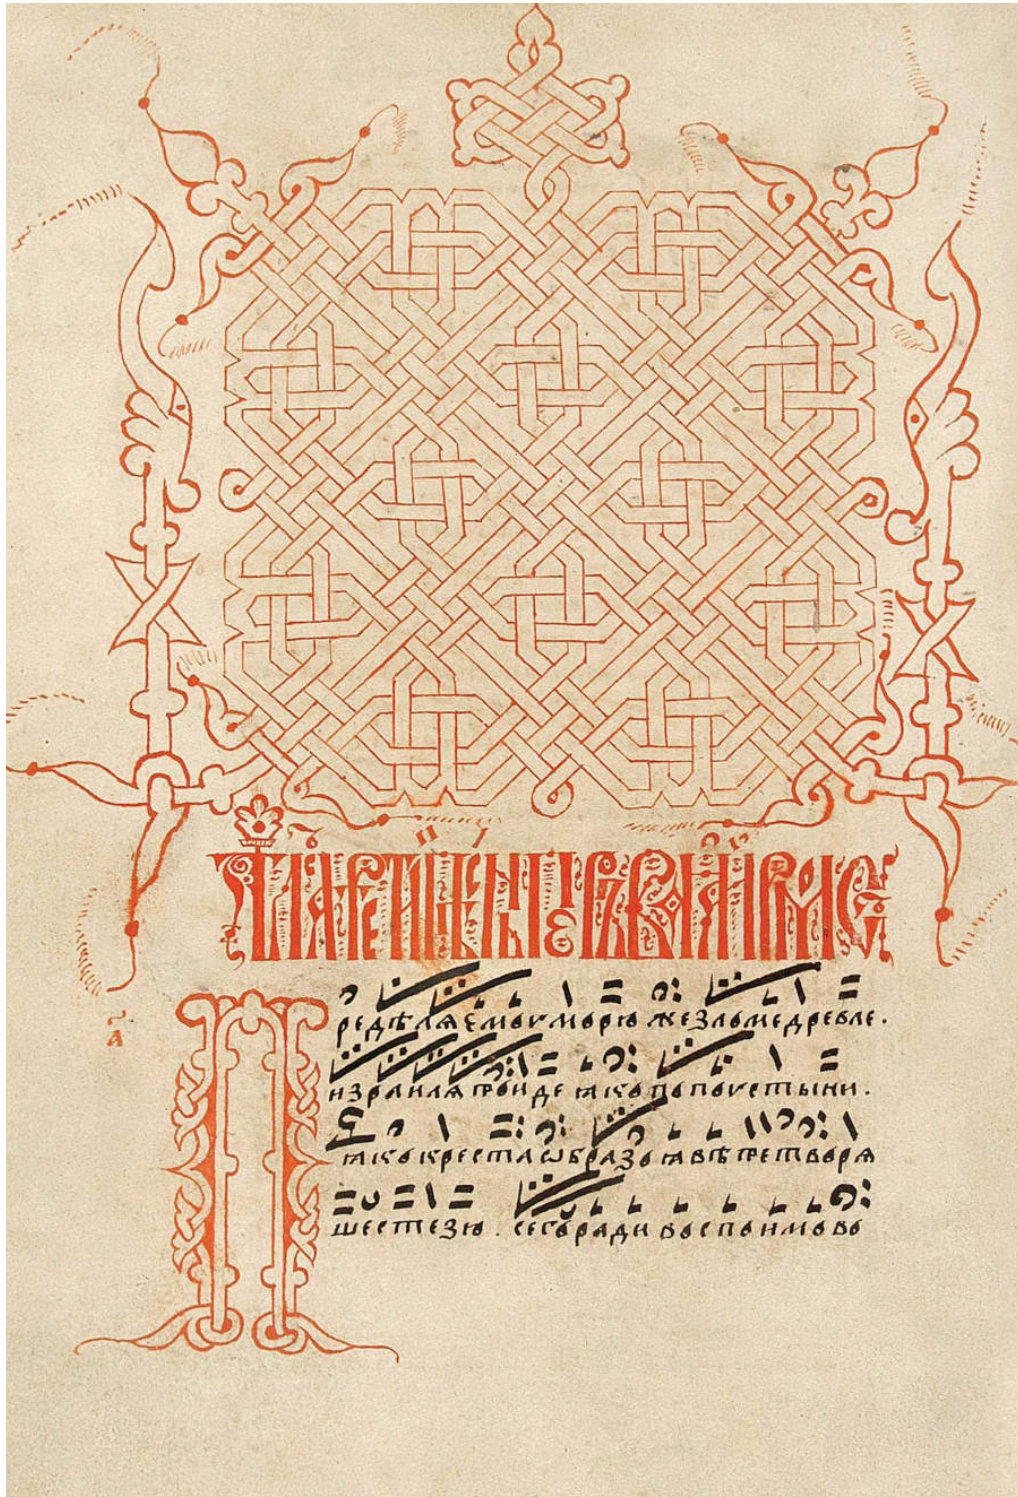 а҃
Предѣлѧемоѵ морю жезломе древле.
израилѧ проиде ꙗко по поѵстыни.
ꙗко креста ѡбразо ꙗвѣ претворѧ
ше стезю . сего ради воспоимо во